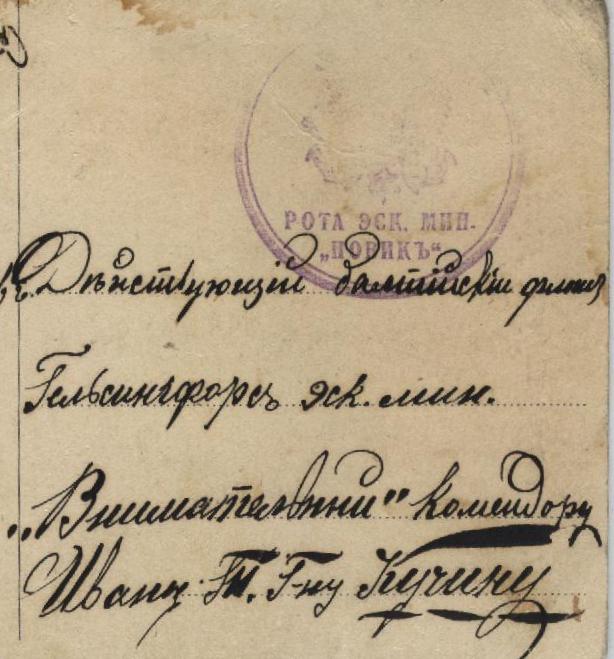 РОТА ЭСК. МИН.
„НОВИКЪ“
Дѣйствующій балтійскій флотъ
Гельсингфорсъ эск. мин.
„Внимательный" комендору
Ивану Т. Г-ну Кучину